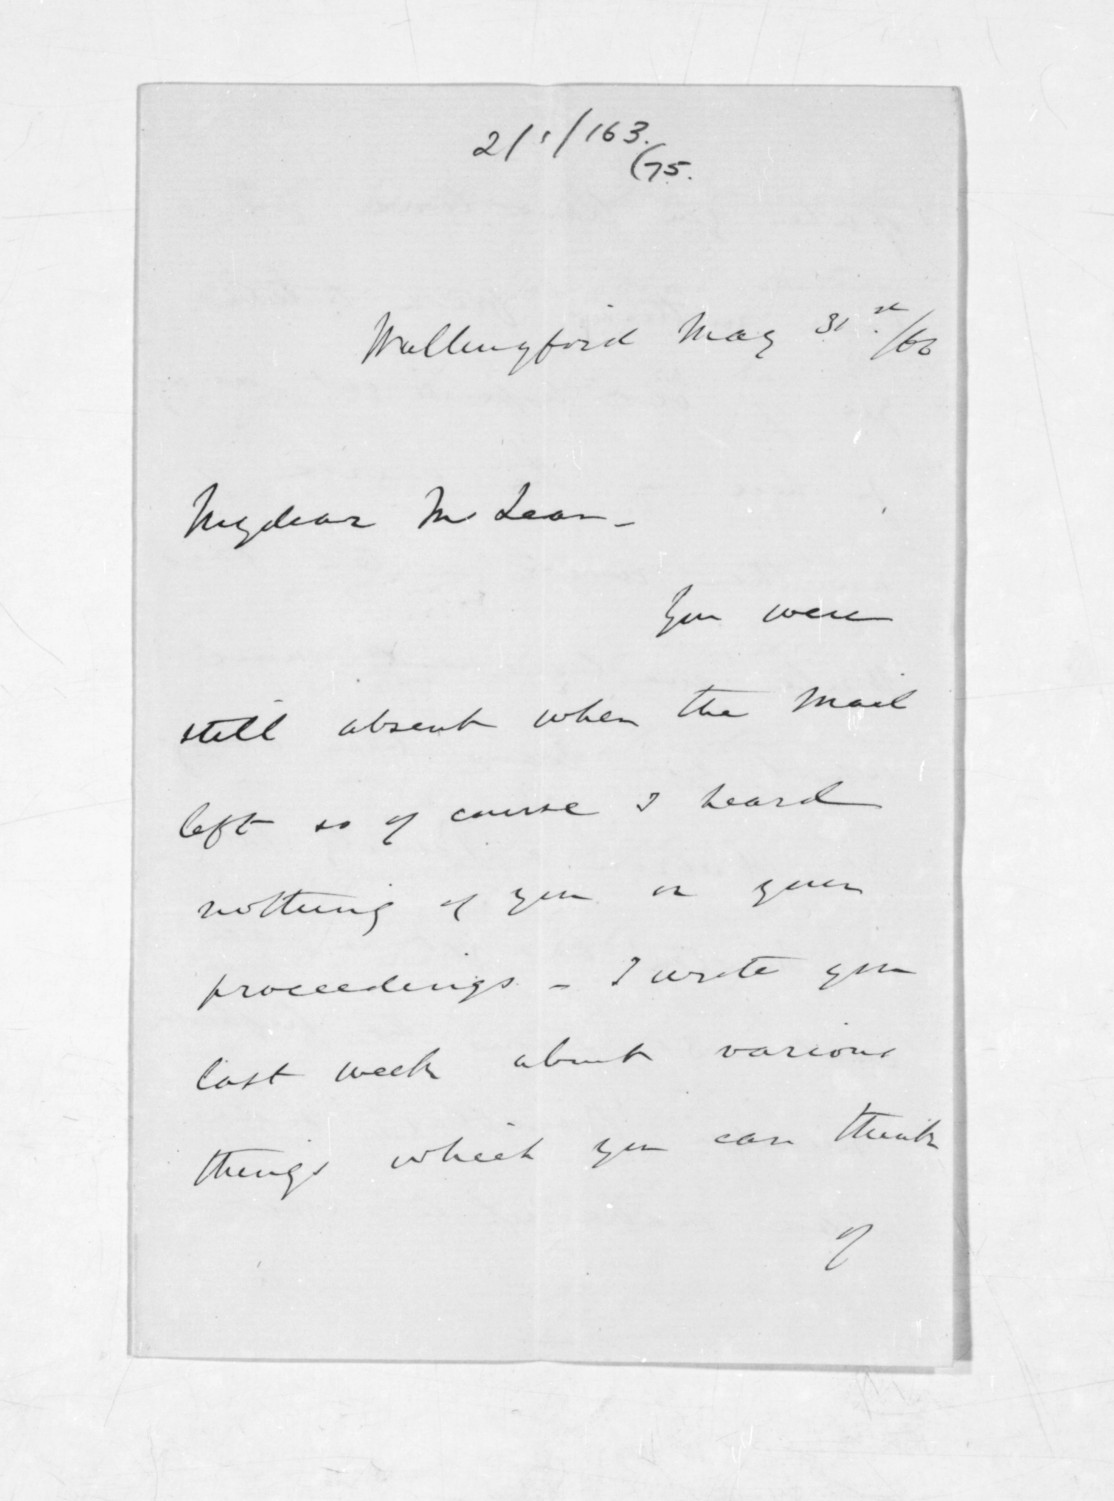 2/1/163.
(75.
Wallingford May 31st/66
My dear McLean_
You were
still absent when the Mail
left so of course I heard
nothing of you or your
proceedings - I wrote you
last week about various
things which you can think
of